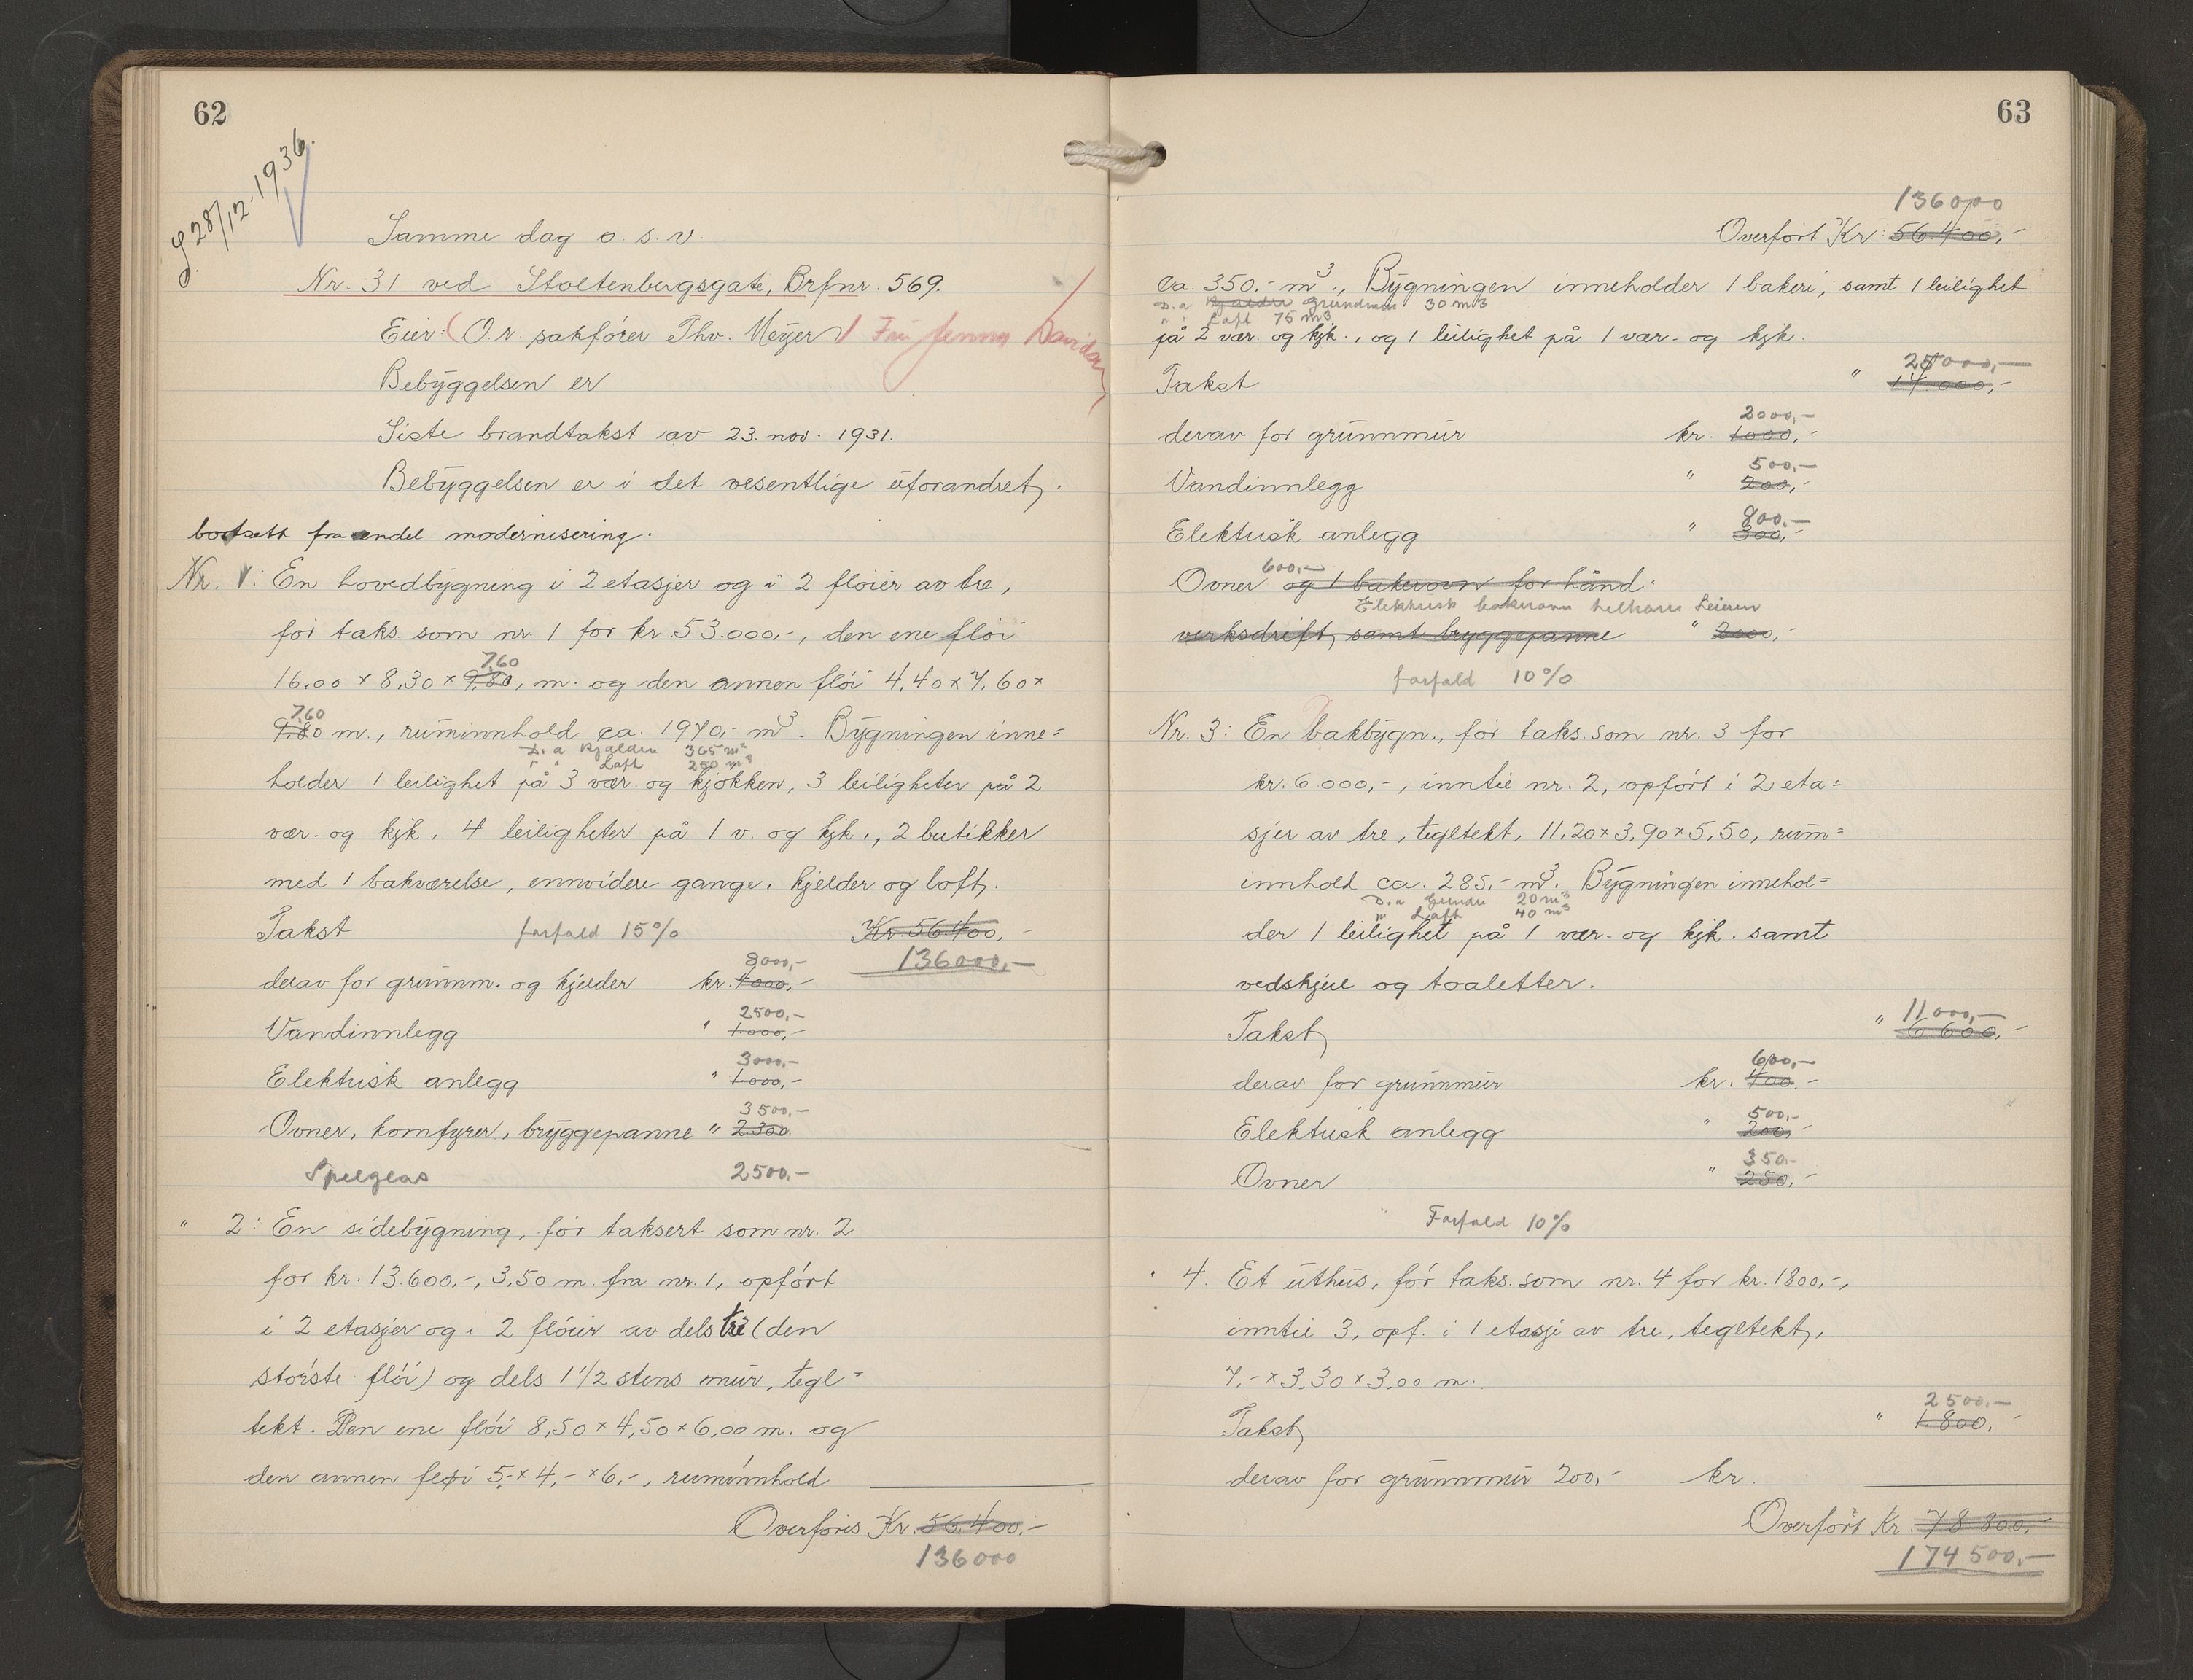 62
28/12-1936.
Samme dag o. s. v.
Nr. 31 ved Stoltenbergsgate, Brfnr. 569.
Eier: (O.r. sakfører Thv. Meyer.) Fru Jenny Davidsen
Bebyggelsen er
Siste brandtakst av 23. nov. 1931.
Bebyggelsen er i det vesentlige uforandret,
bortsett fra endel modernisering.
Nr. 1: En hovedbygning i 2 etasjer og i 2 fløier av tre,
før taks. som nr. 1 for kr. 53.000,-, den ene fløi
7,60
16,00 x 8,30 x 9,80, m. og den annen fløi 4,40 x 7,60 x
7,60
9.80 m., ruminnhold ca. 1970,- m3. Bygningen inne=
D. a Kjelder 365 m3
" " Loft 250 m3
holder 1 leilighet på 3 vær. og kjøkken, 3 leiligheter på 2
vær. og kjk. 4 leiligheter på 1 v. og kjk., 2 butikker
med 1 bakværelse, ennvidere gange, kjelder og loft.
Takst forfald 15% Kr. 56.400,-
8000,- 136000,-
derav for grunnm. og kjelder kr. 4000,-
2500,-
Vandinnlegg " 1.000,-
3000,-
Elektrisk anlegg " 1.000,-
3500,-
Ovner, komfyrer, bryggepanne " 2300
Speilglas 2500,-
" 2: En sidebygning, før taksert som nr. 2
for kr. 13.600,-, 3,50 m. fra nr. 1, opført
i 2 etasjer og i 2 fløier av dels tre (den
største fløi) og dels 1 1/2 stens mur, tegl=
tekt. Den ene fløi 8,50 x 4,50 x 6,00 m. og
den annen fløi 5,- x 4,- x 6,-, ruminnhold
Overføres Kr. 56.400,-
136000
63
136000
Overført Kr. 56.400,-
ca. 350,- m3., Bygningen inneholder 1 bakeri, samt 1 leilighet
D. a Kjelder Grundmur 30 m3
" " Loft 75 m3
på 2 vær. og kjk., og 1 leilighet på 1 vær. og kjk.
25000,-
Takst " 14.000,-
2000,-
derav for grunnmur kr. 1000,-
500,-
Vandinnlegg " 200,-
800,-
Elektrisk anlegg " 300,-
600,-
Ovner og 1 bakerovn for hånd-
Elektrisk bakerovn tilhører Leieren
verksdrift, samt bryggepanne " 2000,-
forfald 10%
Nr. 3: En bakbygn., før taks. som nr. 3 for
kr. 6 000,-, inntil nr. 2, opført i 2 eta=
sjer av tre, tegltekt, 11,20 x 3,90 x 5,50, rum=
innhold ca. 285,- m3. Bygningen innehol=
D. a Grundm 20 m3
" Loft 40 m3
der 1 leilighet på 1 vær. og kjk. samt
vedskjul og toaletter.
11000,-
Takst " 6 600,-
600,-
derav for grunnmur kr. 400.-
500,-
Elektrisk anlegg " 200,-
350.-
Ovner " 250,-
Forfald 10%
" 4. Et uthus, før taks. som nr. 4 for kr. 1800,-,
inntil 3, opf. i 1 etasje av tre, tegltekt,
7,- x 3,30 x 3,00 m.
2500,-
Takst " 1.800,-
derav for grunnmur 200,- kr.
Overført Kr. 78.800,-
174500,-